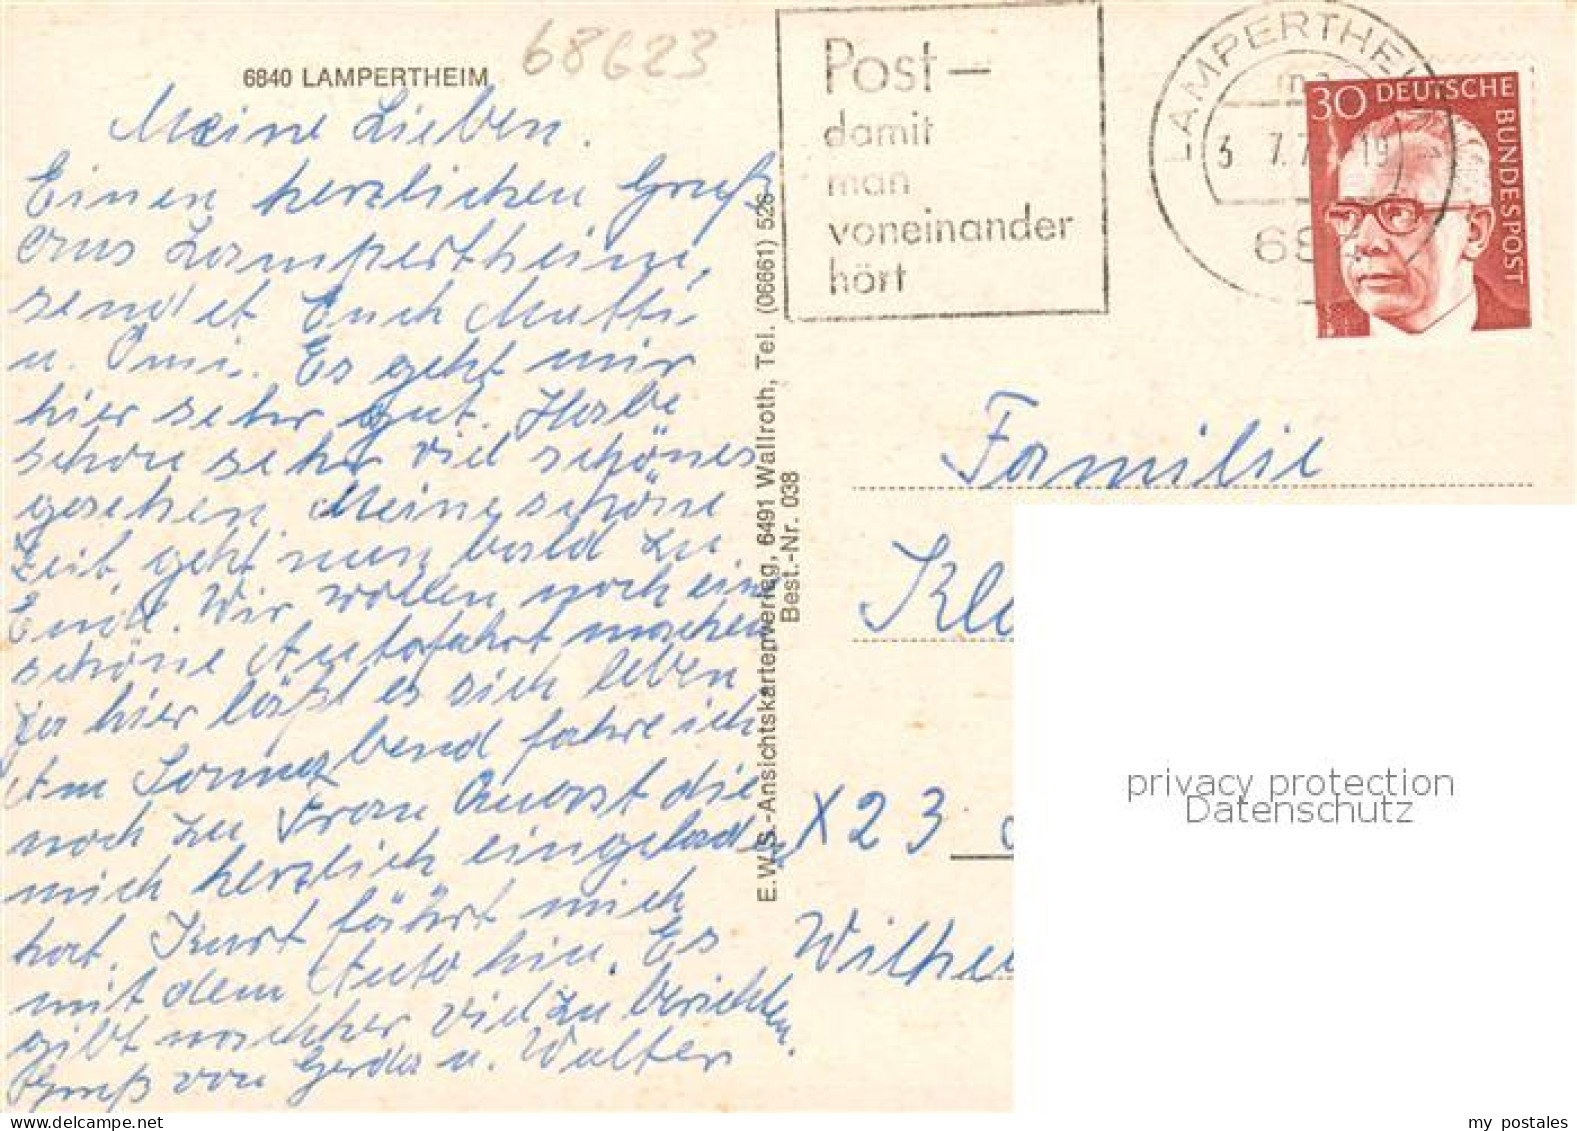 68623
6840 LAMPERTHEIM
Meine Lieben.
Einen herzlichen Gruß
aus Lampertheim,
sendet Euch Mutti
u. Omi. Es geht mir
hier sehr gut. Habe
schon sehr viel schönes
gesehen. Meine schöne
Zeit, geht nun bald zu
Ende. Wir wollen noch eine
schöne Autofahrt machen
Ja hier läßt es sich leben
Am Sonnabend fahre ich
noch zu Frau die
mich herzlich eingeladen
hat. Kurt fährt mich
mit dem Auto hin. Es
gibt nachher viel zu berichten.
Gruß von Gerda u. Walter
E.W.S.-Ansichtskartenverlag, 6491 Wallroth, Tel. (06661) 526
Best.-Nr. 038
Post –
damit
man
voneinander
hört
LAMPERTHEIM
3 7.7 19
30 DEUTSCHE
BUNDESPOST
Familie
Kl
X23
Wilhe
privacy protection
Datenschutz
my postales